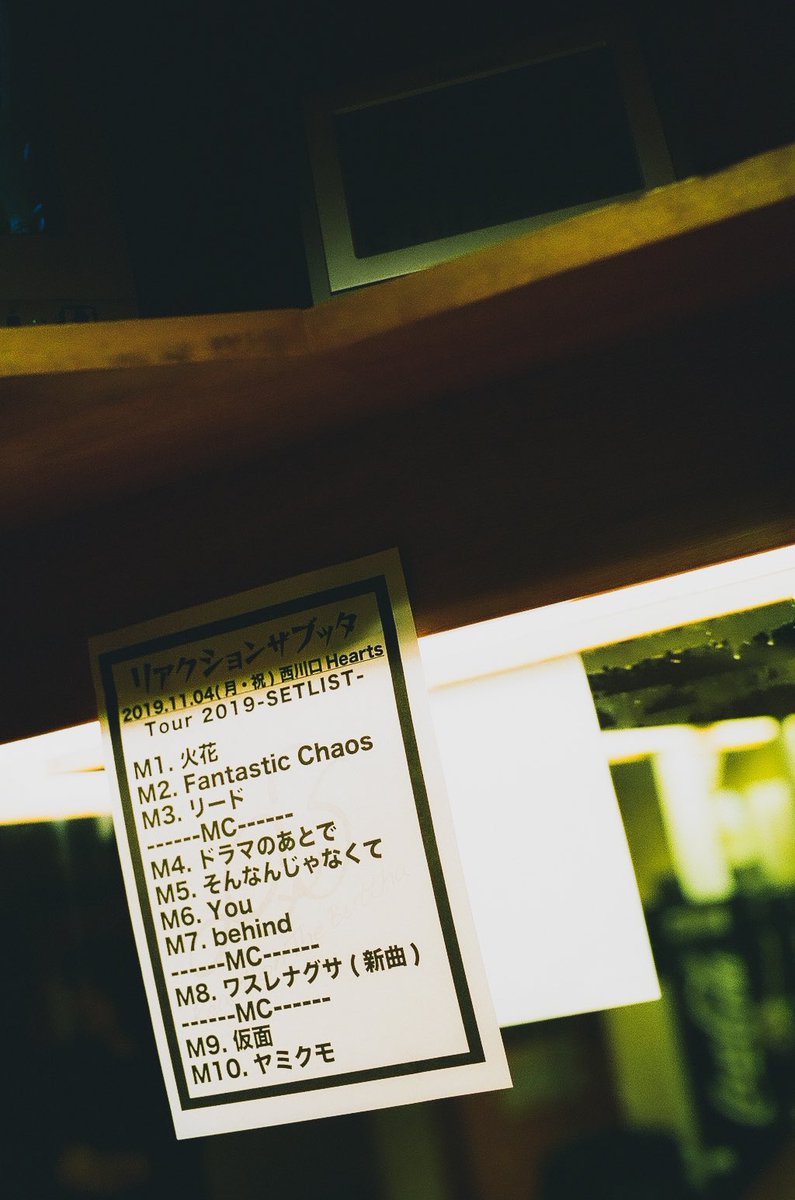 リアクションザブッタ
2019.11.04(月・祝) 西川口 Hearts
Tour 2019-SETLIST-
M1. 火花
M2. Fantastic Chaos
M3. リード
------MC------
M4. ドラマのあとで
M5. そんなんじゃなくて
M6. You
M7. behind
------MC------
M8. ワスレナグサ ( 新曲 )
------MC------
M9. 仮面
M10. ヤミクモ